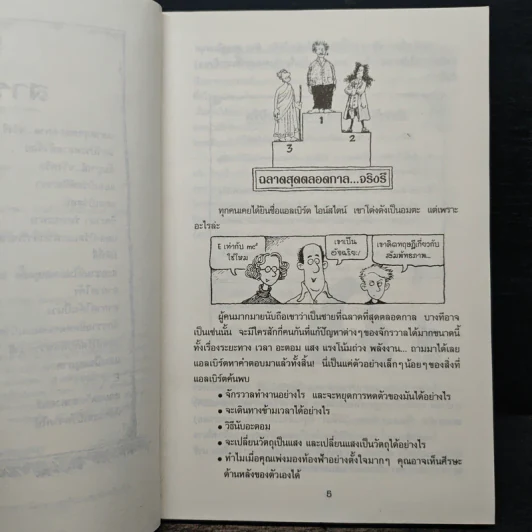 1
2
3
ฉลาดสุดตลอดกาล...จริงรึ
ทุกคนเคยได้ยินชื่อแอลเบิร์ต ไอน์สไตน์ เขาโด่งดังเป็นอมตะ แต่เพราะ
อะไรล่ะ
E เท่ากับ mc²
ใช่ไหม
เขาเป็น
อัจฉริยะ!
เขาคิดทฤษฎีเกี่ยวกับ
สัมพัทธภาพ...
ผู้คนมากมายนับถือเขาว่าเป็นชายที่ฉลาดที่สุดตลอดกาล บางทีอาจ
เป็นเช่นนั้น จะมีใครสักกี่คนกันที่แก้ปัญหาต่างๆของจักรวาลได้มากขนาดนี้
ทั้งเรื่องระยะทาง เวลา อะตอม แสง แรงโน้มถ่วง พลังงาน... ถามมาได้เลย
แอลเบิร์ตหาคำตอบมาแล้วทั้งสิ้น! นี่เป็นแค่ตัวอย่างเล็กๆน้อยๆของสิ่งที่
แอลเบิร์ตค้นพบ
• จักรวาลทำงานอย่างไร และจะหยุดการหดตัวของมันได้อย่างไร
• จะเดินทางข้ามเวลาได้อย่างไร
• วิธีนับอะตอม
• จะเปลี่ยนวัตถุเป็นแสง และเปลี่ยนแสงเป็นวัตถุได้อย่างไร
• ทำไมเมื่อคุณเพ่งมองท้องฟ้าอย่างตั้งใจมากๆ คุณอาจเห็นศีรษะ
ด้านหลังของตัวเองได้
5